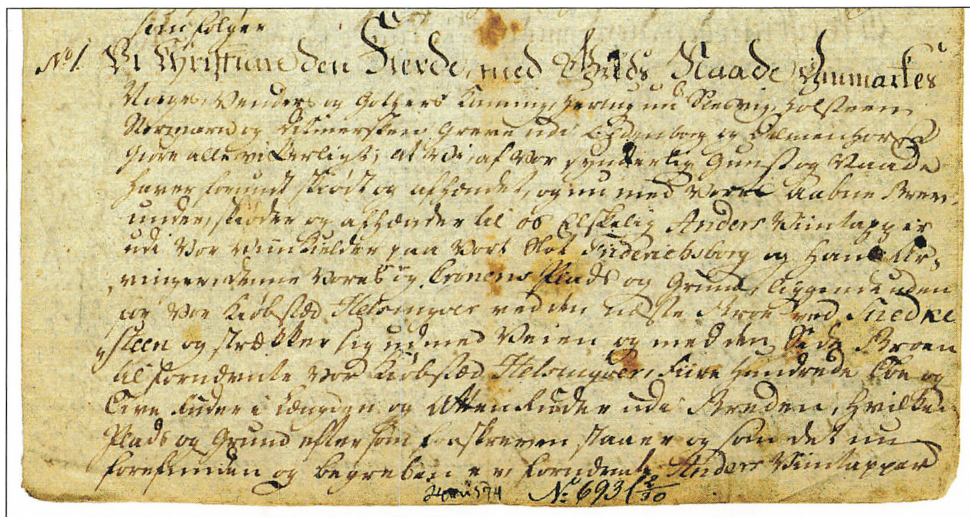 som følger
No 1. Vi Christian den Fierde, med Guds Naade Danmarkes
Norges, Venders og Gothers Konning, Hertug udi Slesvig, Holsteen
Stormarn og Ditmersken Greve udi Oldenborg og Delmenhorst
Giøre alle vitterligt, at Vi, af Vor synderlig Gunst og Naade
haver forundt skiødt og afhendet, og nu med Vore Aabne Brev,
under, skiøder og afhænder til os Elskelig Anders Viintapper
udi Vor Viinkielder paa Vort Slot Friderichsborg og hans Ar,
vinger denne Vores og Cronens Plads og Grund, liggende uden
for Vor Kiøbsted Helsingøer ved den næste Broe ved Snedke
steen og strækker sig ud med Veien og med den Side Broen
til forndevnte Vor Kiøbsted Helsingøer, Fiire hundrede Eet og
Tive Fuder i Længden og Atten Fuder udi Breden, hvilken
Plads og Grund eftersom forskreven staaer og som det nu
forefunden og begreben er, forndevnte Anders Viintapper
No. 693 (2/30